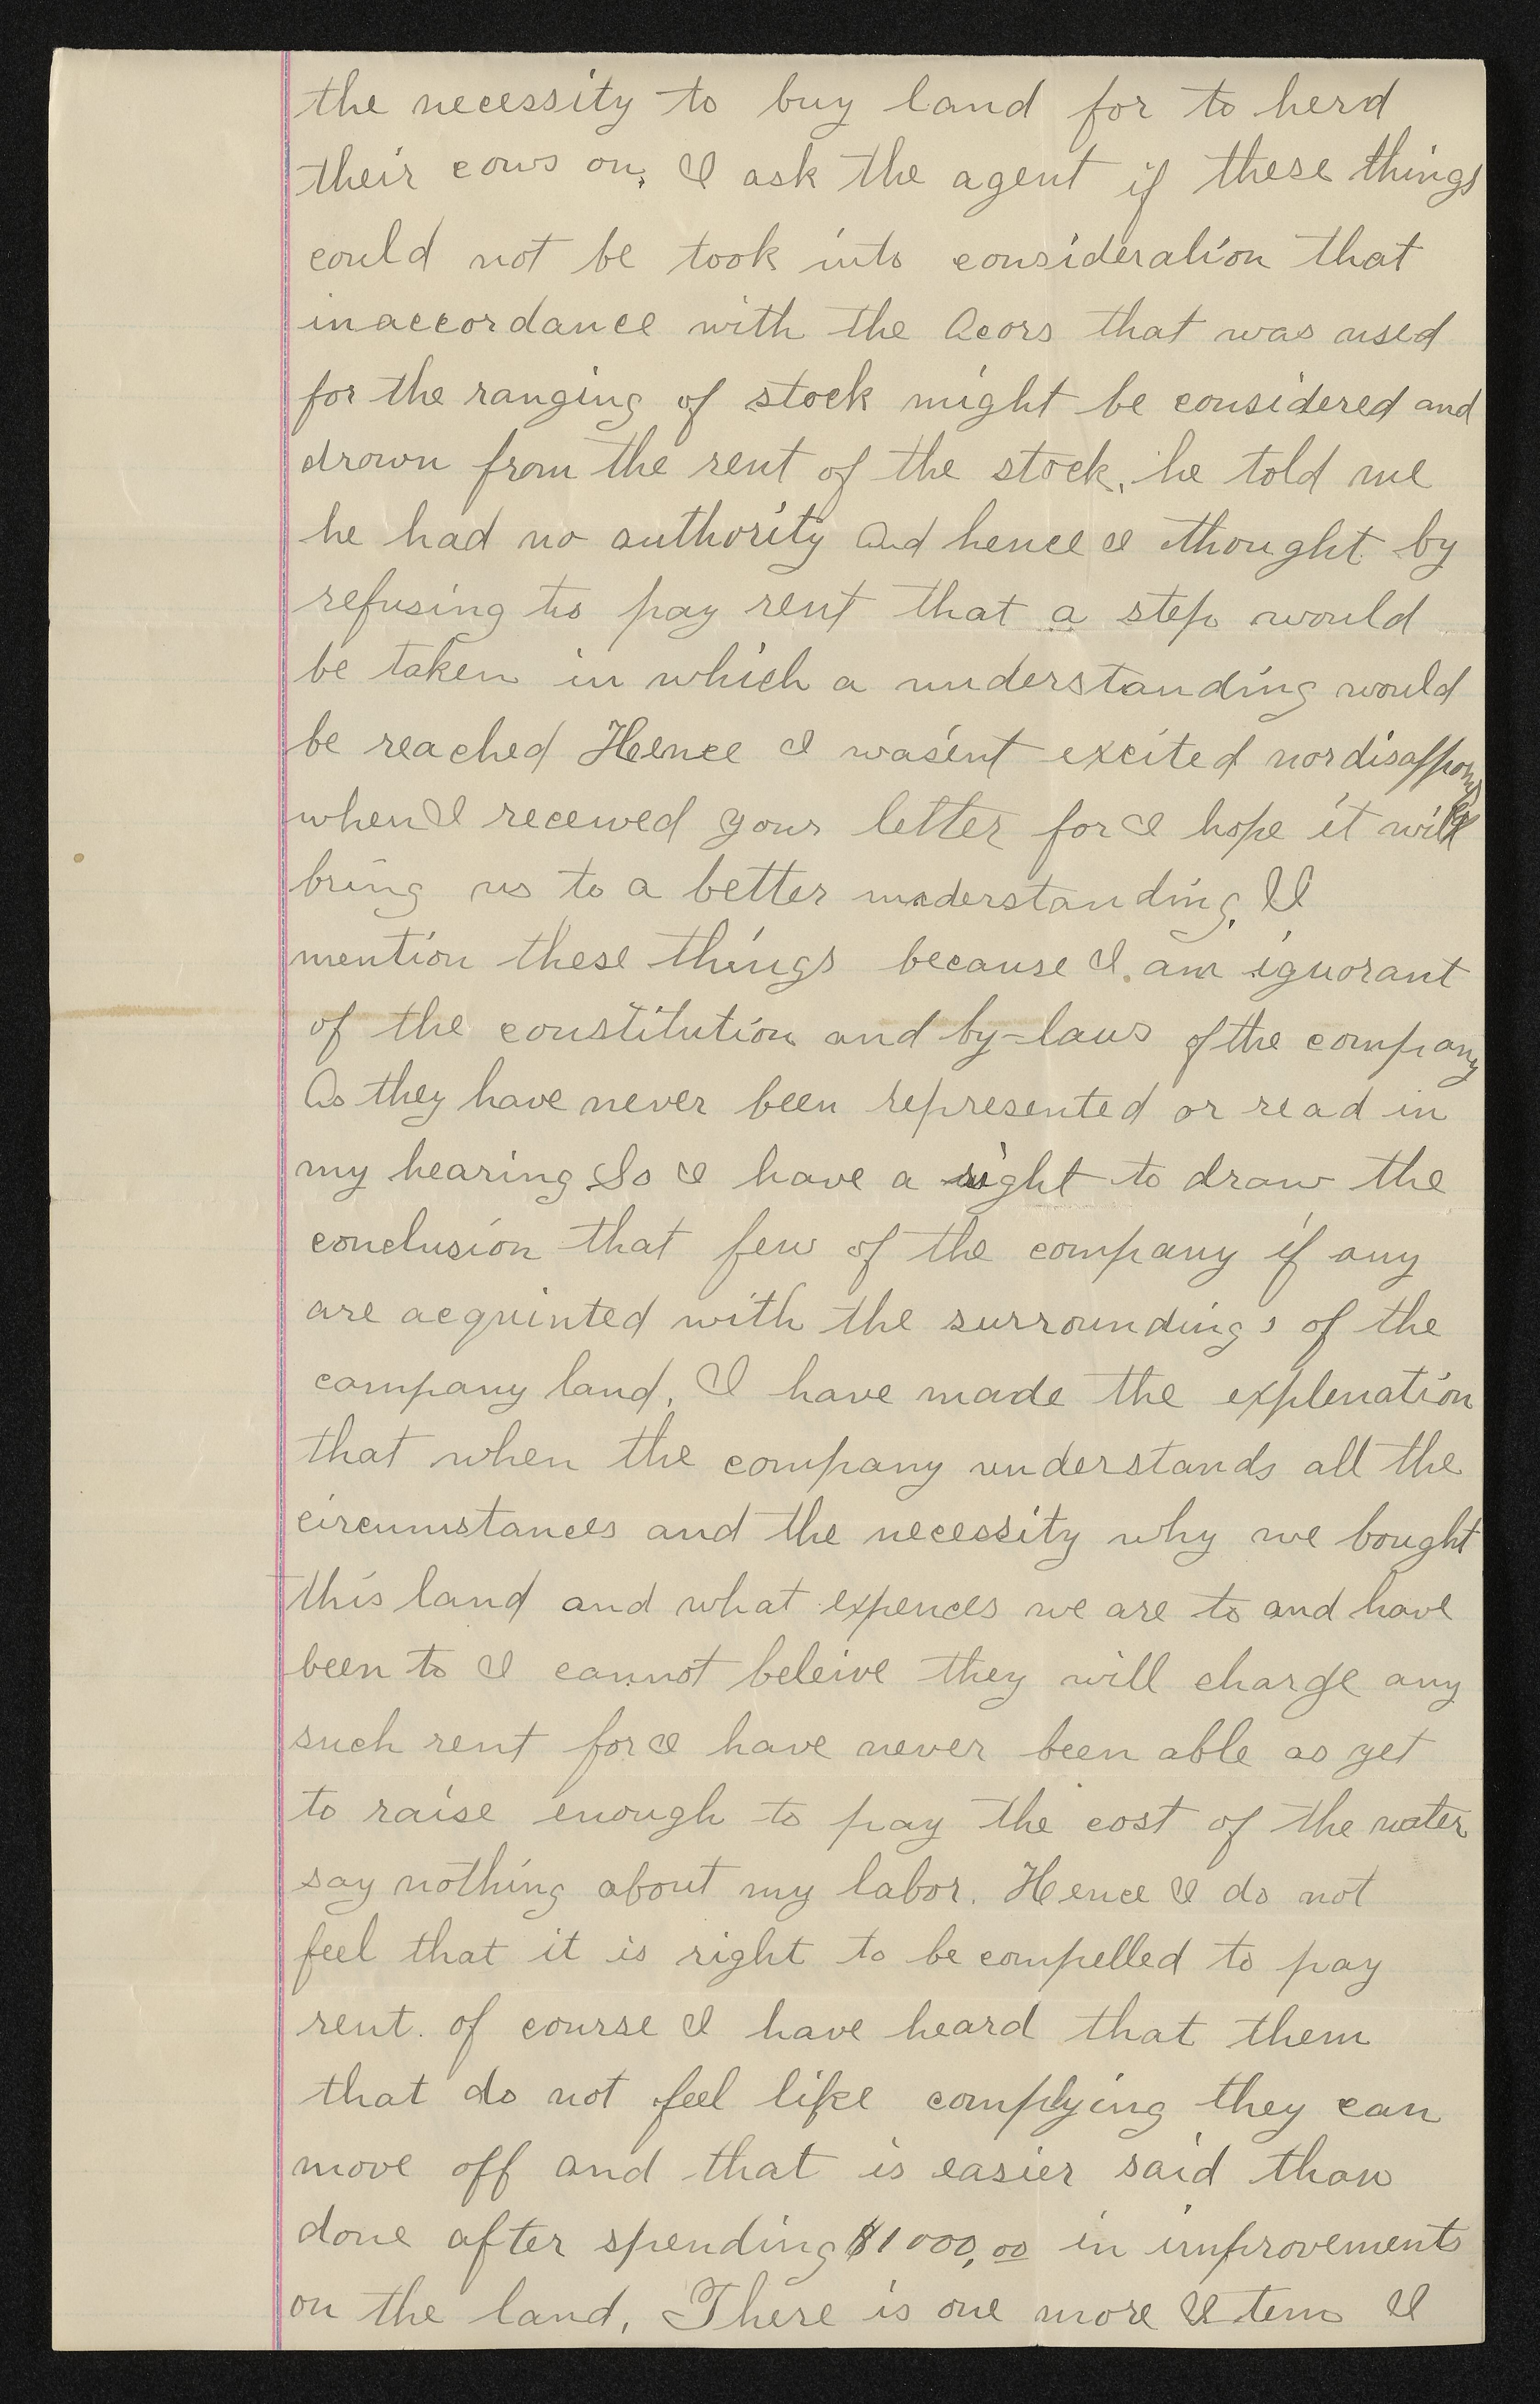 the necessity to buy land for to herd
their cows on, I ask the agent if these things
could not be took into consideration that
inaccordance with the Acors that was used
for the ranging of stock might be considered and
drown from the rent of the stock, he told me
he had no authority And hence I thought by
refusing to pay rent that a step would
be taken in which a understanding would
be reached Hence I was'ent excited nor
when I received your letter for I hope it will
bring us to a better understanding. I
mention these things because I am ignorant
of the constitution and by-laws of the company
As they have never been represented or read in
my hearing So I have a right to draw the
conclusion that few of the company if any
are acquinted with the surroundings of the
company land, I have made the explenation
that when the company understands all the
circumstances and the necessity why we bought
this land and what expences we are to and have
been to I cannot beleive they will charge any
such rent for I have never been able as yet
to raise enough to pay the cost of the water
say nothing about my labor. Hence I do not
feel that it is right to be compelled to pay
rent. of course I have heard that them
that do not feel like complying they can
move off and that is easier said than
done after spending $1000,00 in improvements
on the land, There is one more Item I